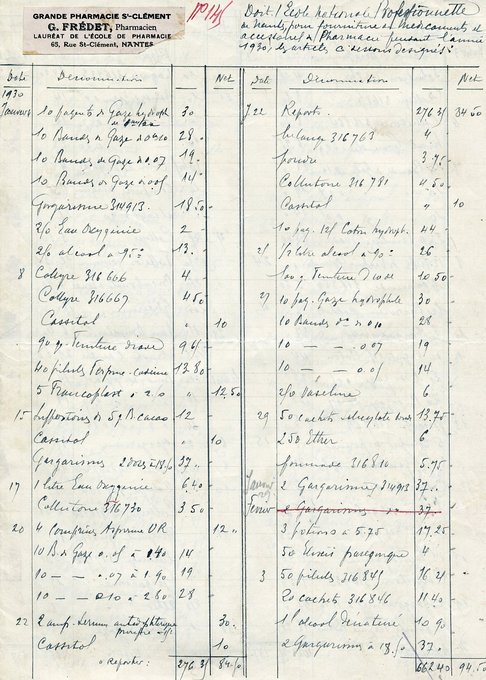 GRANDE PHARMACIE St-CLÉMENT
G. FRÉDET, Pharmacien
LAURÉAT DE L'ÉCOLE DE PHARMACIE
63, Rue St-Clément, NANTES
Doit l'École Nationale Professionnelle
de Nantes, pour fourniture de médicaments et
accessoires de Pharmacie pendant l'année
1930, les articles ci-dessous désignés :
Date Dénomination Net
1930
Janvier 10 paquets de Gaze hydroph 30
10 Bandes de Gaze 28
10 Bandes de Gaze 0.07 19
10 Bandes de Gaze 0.05 14
Gargarisme 314913. 18.50
Eau Oxygénée 2
alcool à 95° 13.
8 Collyre 316666 4
Collyre 316667 4.50
Cassitol " 10
90 g. Teinture d'iode
40 pilules Terpine-codéine 13.80
5 Francoplast à 2.50 " 12.50
15 Suppositoires de B. cacao 12
Cassitol " 10
Gargarismes 2 doses à 18.50 37.
17 1 litre Eau Oxygénée 6.40
Collutoire 316730 3.50
20 4 Comprimés Aspirine UR 12
10 B. de Gaze 0.05 à 1.40 14
10 — — 0.07 à 1.90 19
10 — — 0.10 à 2.80 28
22 2 amp. Serum 30.
Cassitol 10
à Reporter : 276.35 84.50
Date Dénomination Net
J 22 Reports. 276.35 84.50
mélange 316763 4
poudre 3.75
Collutoire 316781 4.50
Cassitol " 10
10 paq. Coton hydroph. 44
1/2 litre alcool à 90° 26
100 g Teinture d'iode 10.50
27 10 paq. Gaze hydrophile 30
10 Bandes do 0.10 28
10 — — 0.07 19
10 — — 0.05 14
Vaseline 6
29 50 cachets 13.75
250 Ether 6
pommade 316810 5.75
Janvier 29 2 Gargarismes 314913 37.
Février 2 Gargarismes do 37.
3 potions à 5.75 17.25
50 Elixir parégorique 4
3 50 pilules 316845
20 cachets 316846 11.40
1 l alcool dénaturé 10.90
2 Gargarismes à 18.50 37.
662.40 94.50